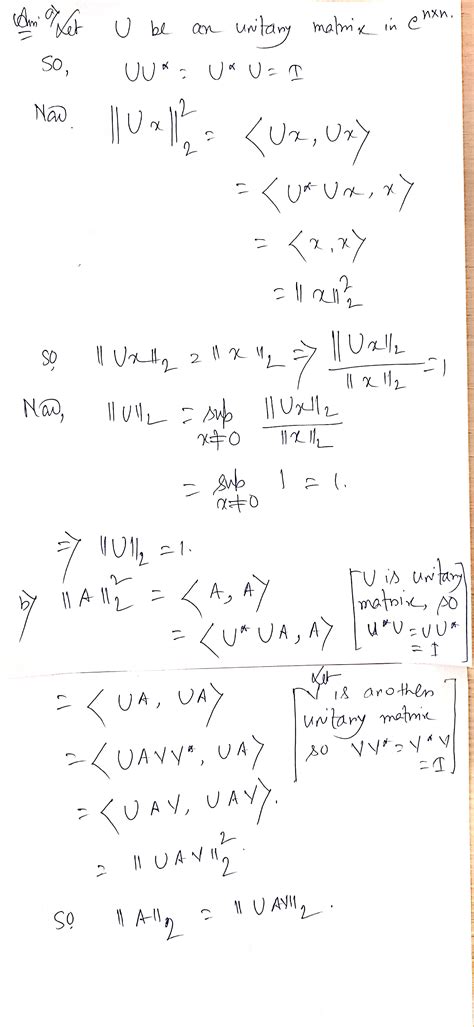 Ans: a) Let U be an unitary matrix in C^{n×n}.
So, UU* = U*U = I
Now. ||Ux||_2^2 = <Ux, Ux>
= <U*Ux, x>
= <x, x>
= ||x||_2^2
So ||Ux||_2 = ||x||_2 ⇒ ||Ux||_2 / ||x||_2 = 1
Now, ||U||_2 = sup_{x≠0} ||Ux||_2 / ||x||_2
= sup_{x≠0} 1 = 1.
⇒ ||U||_2 = 1.
b) ||A||_2^2 = <A, A>
= <U*UA, A>
[U is unitary
matrix, so
U*U = UU*
= I]
= <UA, UA>
= <UAVV*, UA>
= <UAV, UAV>.
= ||UAV||_2^2.
[Let
V is another
unitary matrix
so VV* = V*V
= I]
So ||A||_2 = ||UAV||_2.